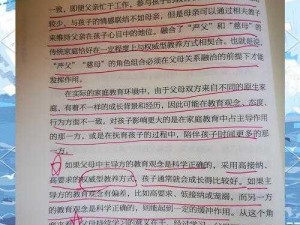 一致。即使父亲忙于工作，参与孩子的教育
较少，与孩子的情感联结不如母亲，但是母亲可以通过相关孩子
来维护父亲在孩子心目中的地位，融合了“严父”和“慈母”的
传统家庭恰好在一定程度上与权威型教养方式相契合。也就是说，
“严父”“慈母”的角色组合必须在父母关系融洽的前提下才能
发挥作用。
在实际的家庭教育环境中，由于父母双方来自不同的原生家
庭，有着不一样的成长背景和经历，因此可能在教育观念、态度、
行为方面不一致，对孩子影响更大的是在家庭教育中占主导作用
的那一方，或是在抚育孩子的过程中，陪伴孩子时间更多的那
一方：
如果父母中主导方的教育观念是科学正确的，采用高接纳、
高要求的权威型教养方式，孩子通常就会成长得比较好。如果主
导方的教育观念有偏差，比如高要求、低接纳或宠溺，而另一方
的教育观念是科学正确的，则能起到一定的缓冲作用。从这个角